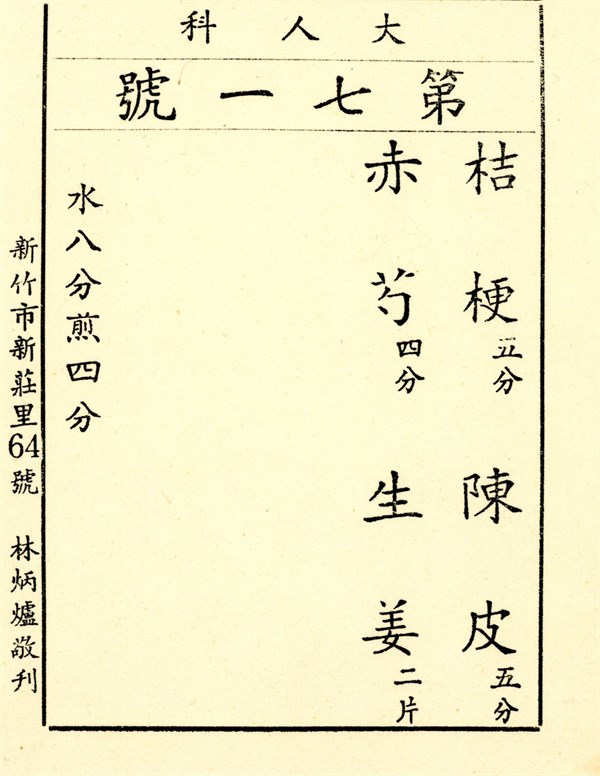 大人科
第七一號
桔梗五分　陳皮五分
赤芍四分　生姜二片
水八分煎四分
新竹市新莊里64號　林炳爐敬刋